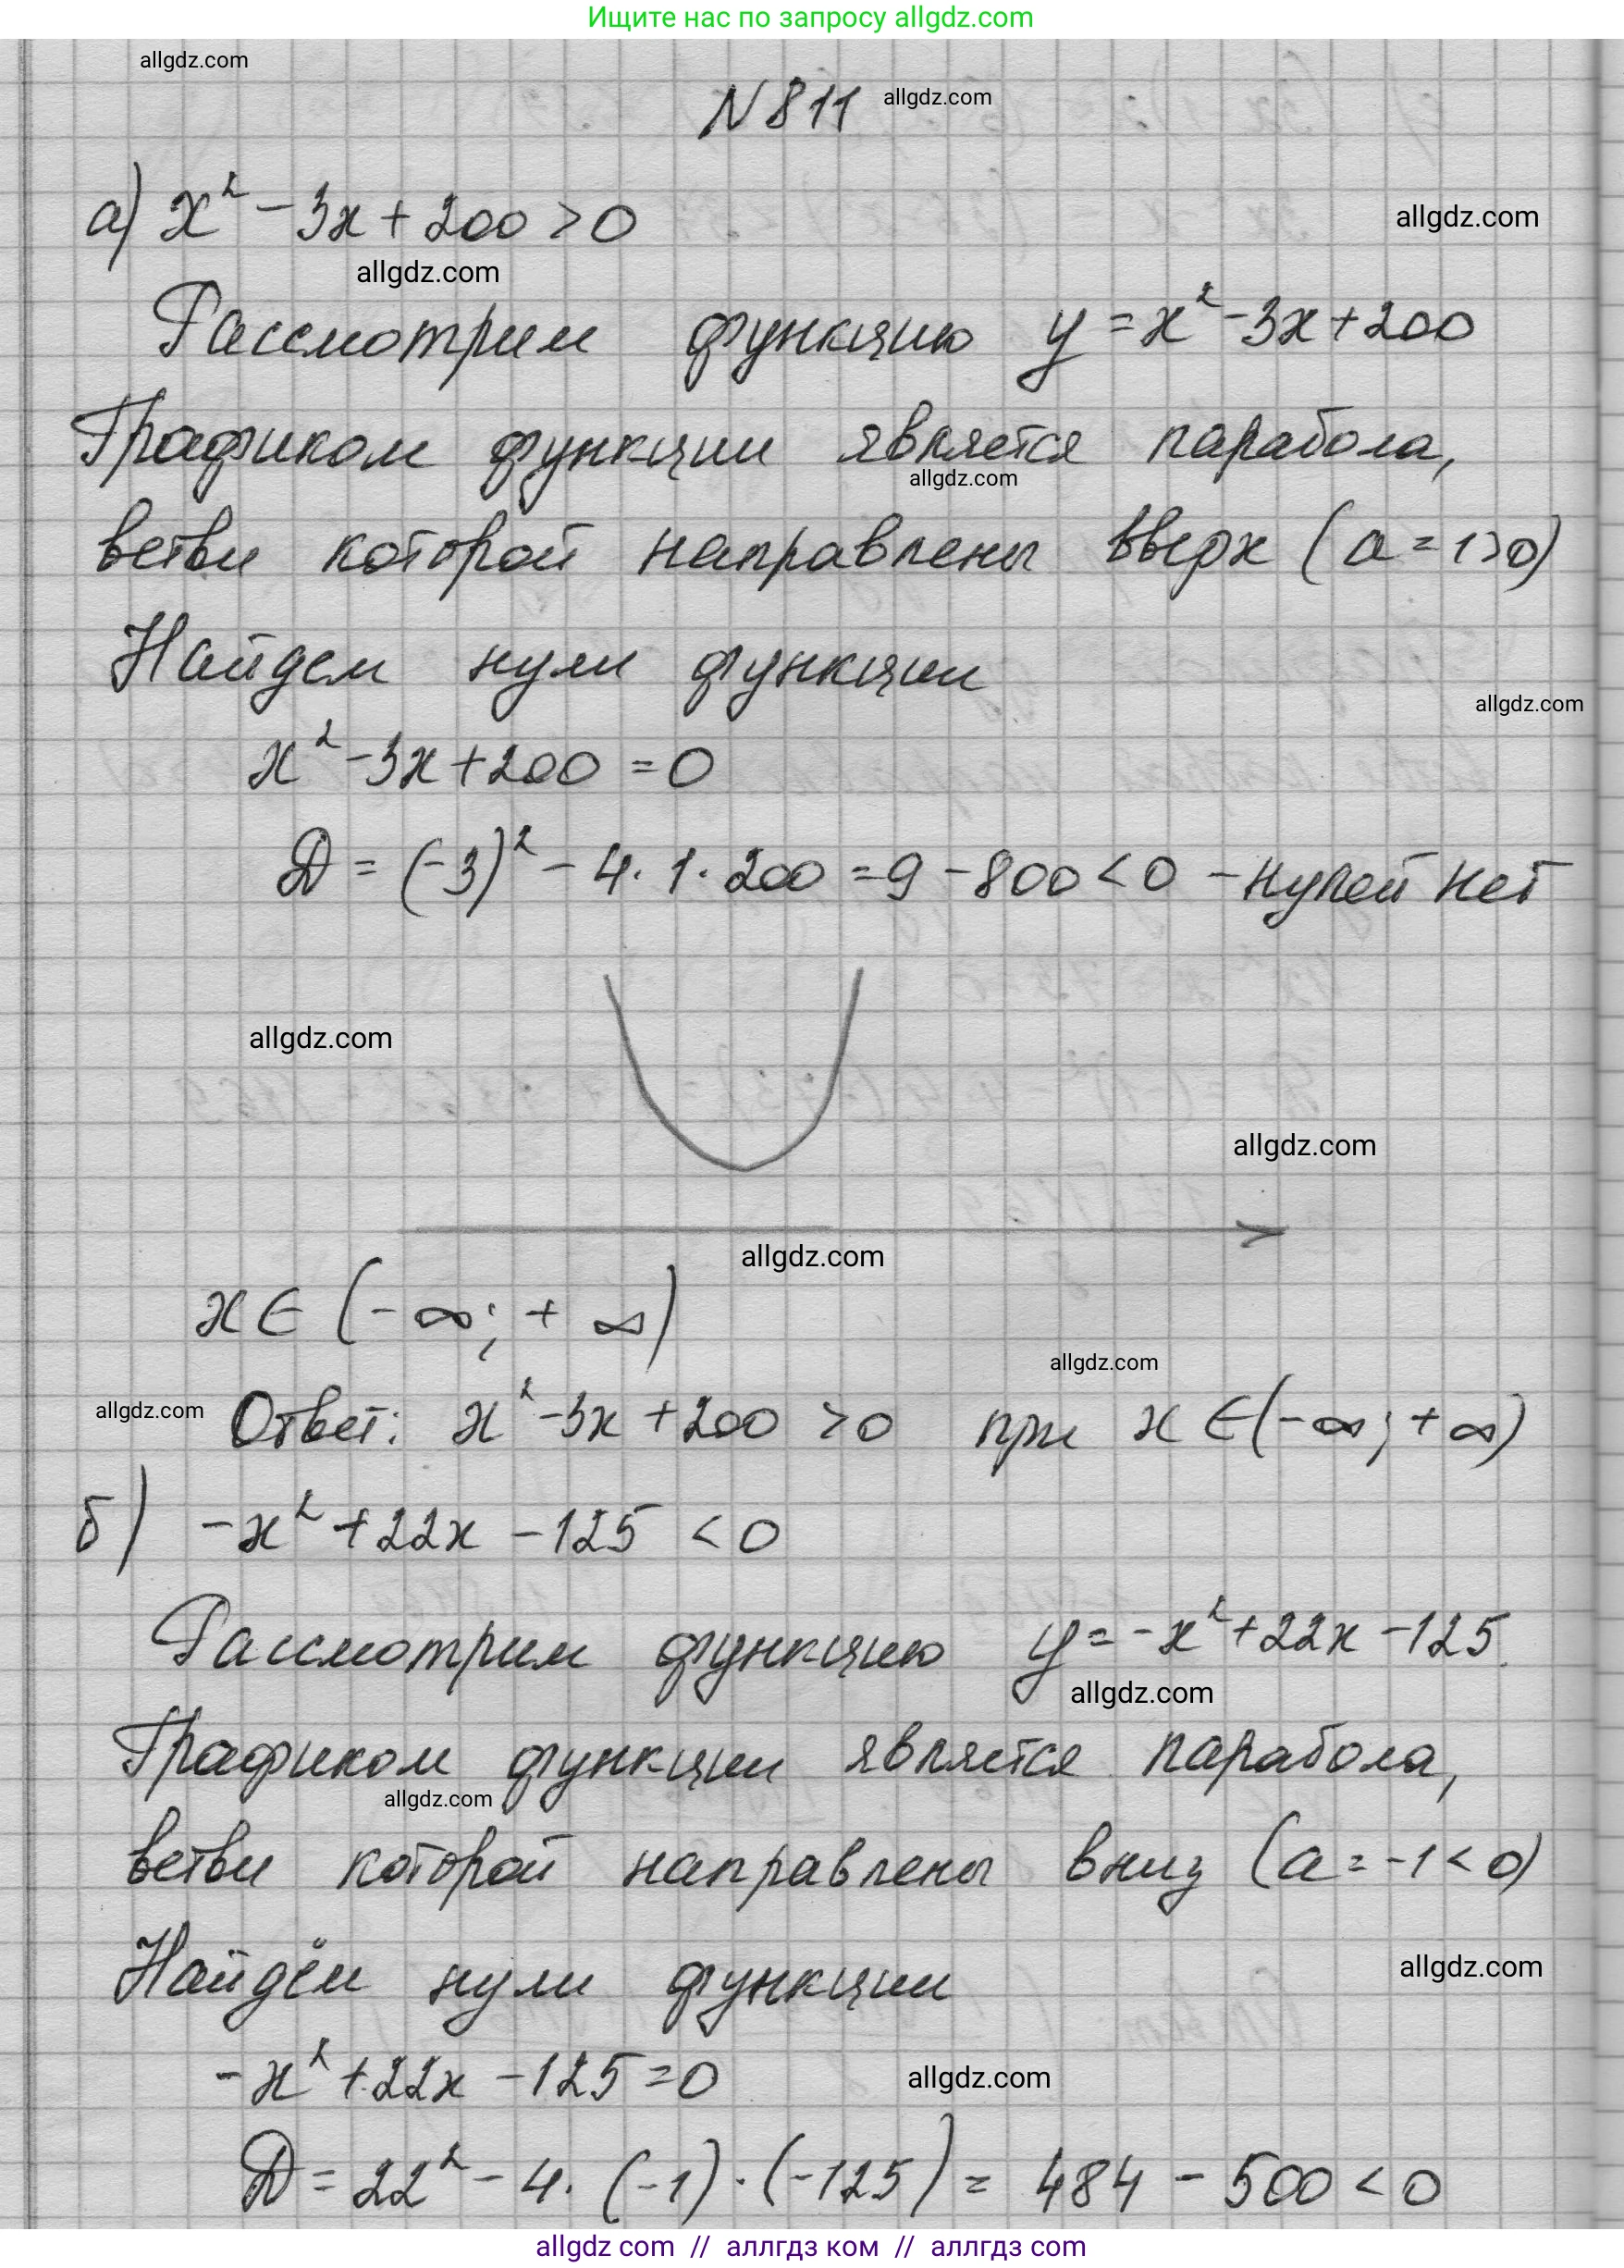 Ищите нас по запросу allgdz.com
allgdz.com
N 811 allgdz.com
а) x² - 3x + 200 > 0
allgdz.com
allgdz.com
Рассмотрим функцию y = x² - 3x + 200
Графиком функции является парабола,
allgdz.com
ветви которой направлены вверх (a = 1 > 0)
Найдем нули функции
allgdz.com
x² - 3x + 200 = 0
D = (-3)² - 4 · 1 · 200 = 9 - 800 < 0 - нулей нет
allgdz.com
allgdz.com
allgdz.com
x ∈ (-∞; +∞)
allgdz.com
allgdz.com
Ответ: x² - 3x + 200 > 0 при x ∈ (-∞; +∞)
б) -x² + 22x - 125 < 0
Рассмотрим функцию y = -x² + 22x - 125.
allgdz.com
Графиком функции является парабола,
allgdz.com
ветви которой направлены вниз (a = -1 < 0)
Найдём нули функции
allgdz.com
-x² + 22x - 125 = 0
allgdz.com
D = 22² - 4 · (-1) · (-125) = 484 - 500 < 0
allgdz com // аллгдз ком // аллгдз com